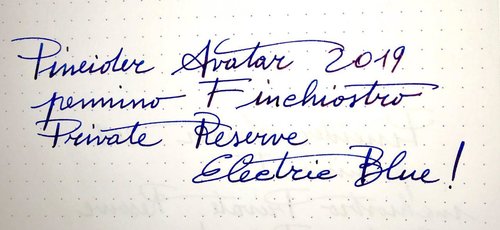 Pineider Avatar 2019
pennino F inchiostro
Private Reserve
Electric Blue!